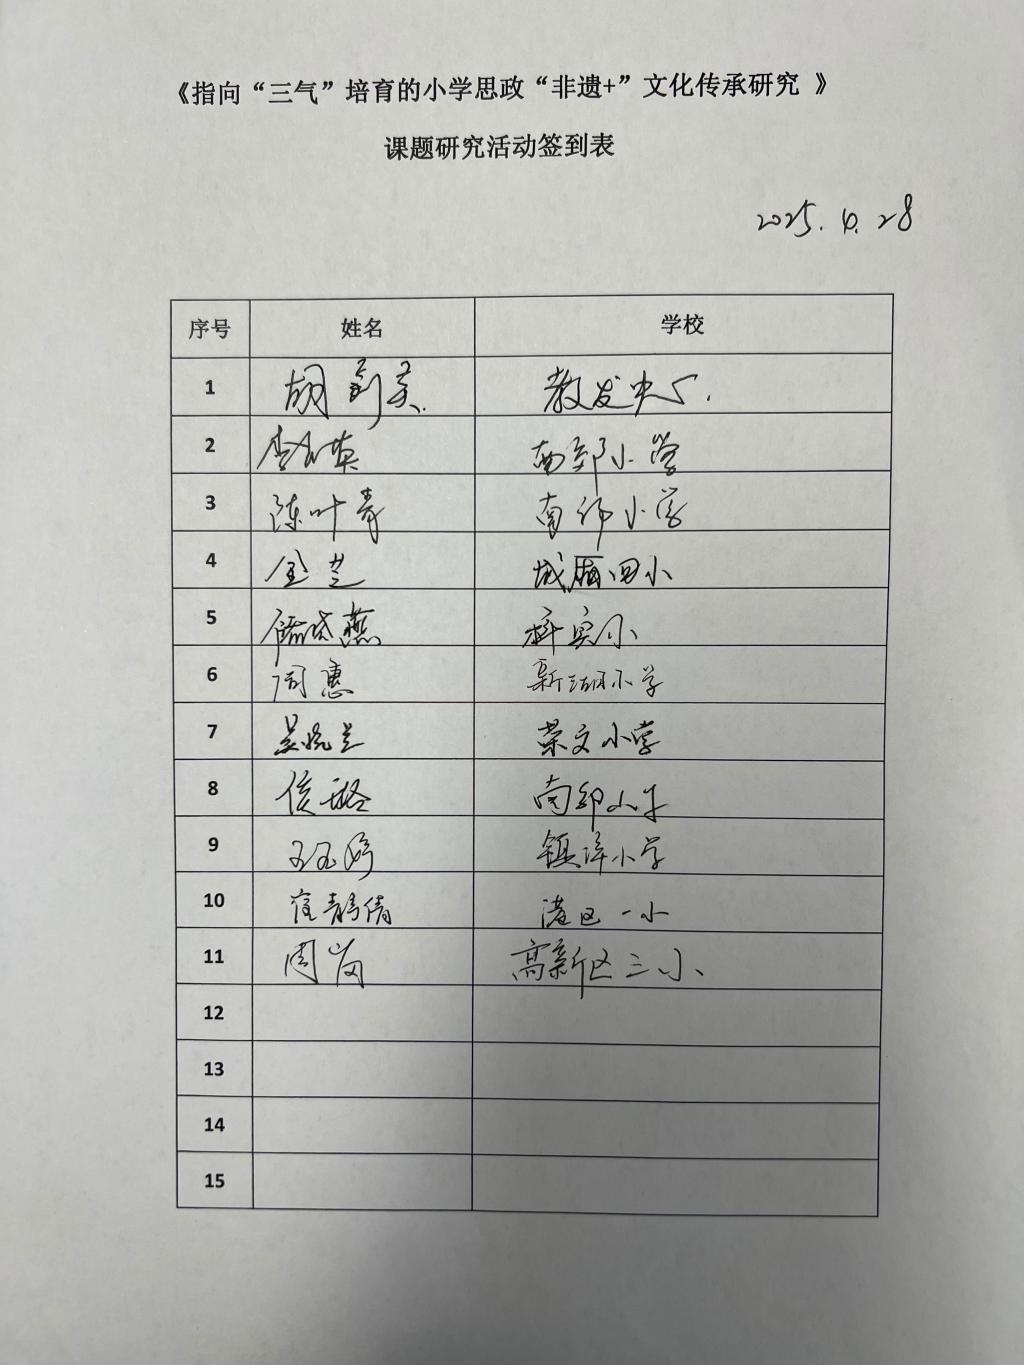 《指向“三气”培育的小学思政“非遗+”文化传承研究 》
课题研究活动签到表
2025.4.28
序号 姓名 学校
1 胡 教发中心.
2 南郊小学
3 陈叶青 南郊小学
4 金芝 城厢四小
5 科实小
6 周惠 新湖小学
7 吴晓兰 荣文小学
8 侯璐 南郊小学
9 王玉婷 镇洋小学
10 崔静倩 港区一小
11 周岚 高新区三小
12
13
14
15